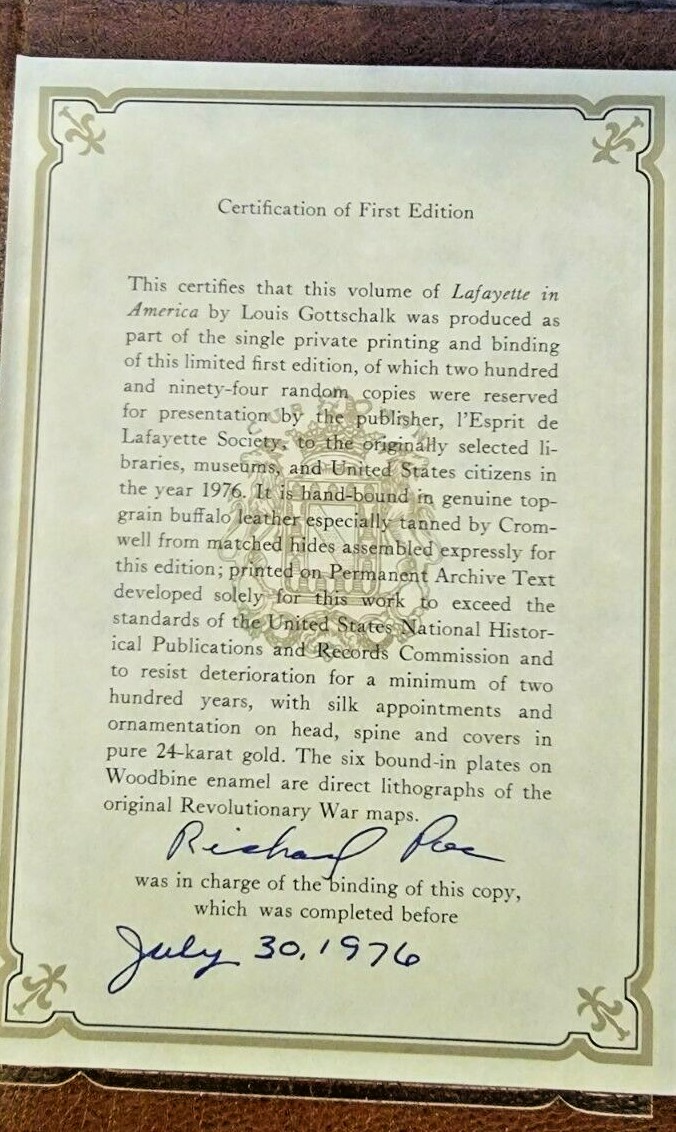 Certification of First Edition
This certifies that this volume of Lafayette in
America by Louis Gottschalk was produced as
part of the single private printing and binding
of this limited first edition, of which two hundred
and ninety-four random copies were reserved
for presentation by the publisher, l'Esprit de
Lafayette Society, to the originally selected li-
braries, museums, and United States citizens in
the year 1976. It is hand-bound in genuine top-
grain buffalo leather especially tanned by Crom-
well from matched hides assembled expressly for
this edition; printed on Permanent Archive Text
developed solely for this work to exceed the
standards of the United States National Histor-
ical Publications and Records Commission and
to resist deterioration for a minimum of two
hundred years, with silk appointments and
ornamentation on head, spine and covers in
pure 24-karat gold. The six bound-in plates on
Woodbine enamel are direct lithographs of the
original Revolutionary War maps.
Richard
was in charge of the binding of this copy,
which was completed before
July 30, 1976